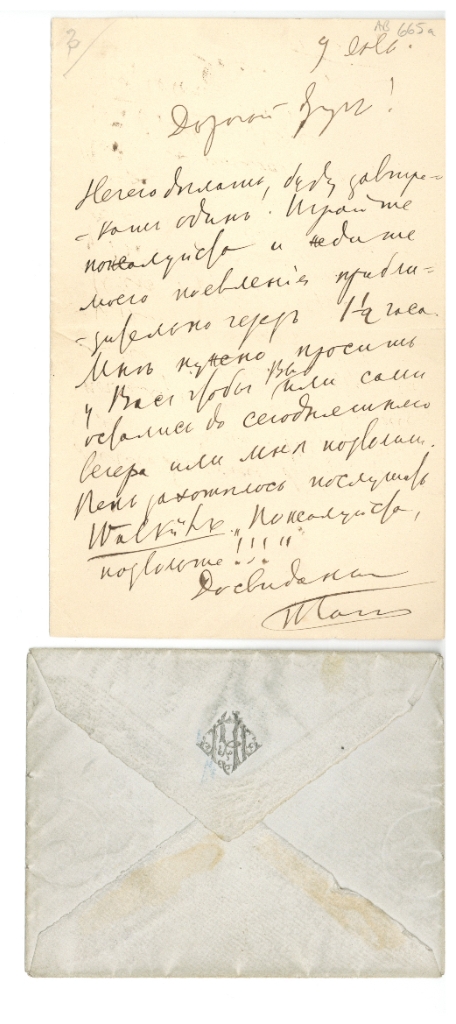 AB 665a
9 янв.
Дорогой Друг!
Нечего делать, буду завтра-
-кать одинъ. Играйте
пожалуйста и ждите
моего появленія прибли-
-зительно черезъ 1½ часа.
Мнѣ нужно просить
у Васъ чтобы Вы или сами
остались до сегодняшняго
вечера или мнѣ позволили.
захотѣлось послушать
Walküre. „Пожалуйста,
позвольте!!!"
Досвиданія